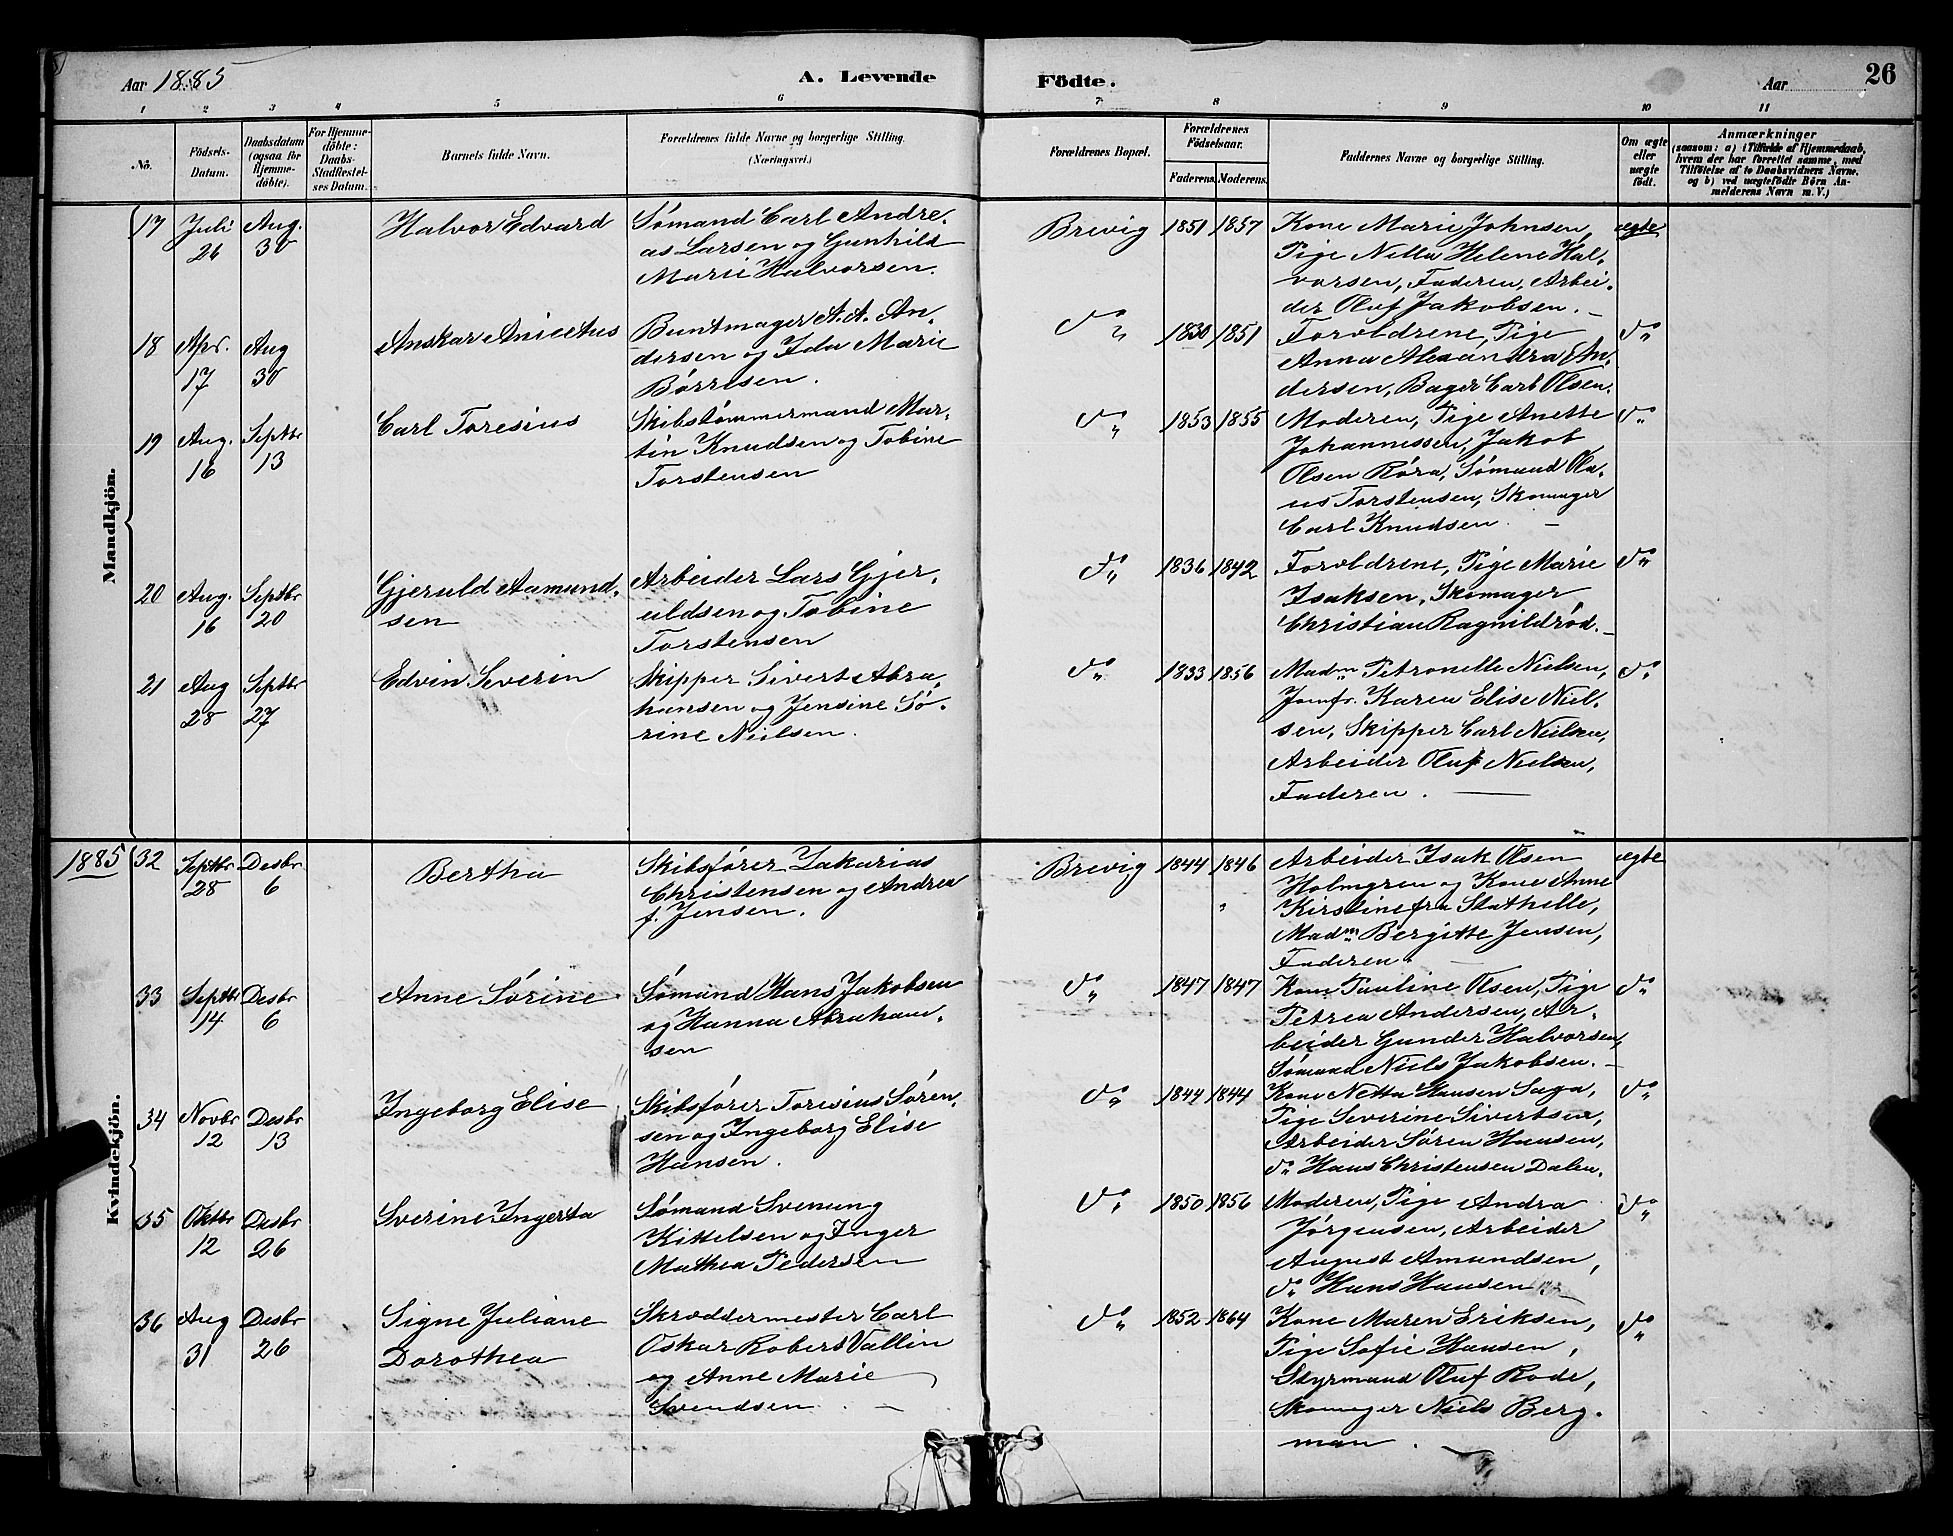 Aar 1885 A. Levende Födte. Aar 26
1 2 3 4 5 6 7 8 9 10 11
No.
Födsels-
Datum.
Daabsdatum
(ogsaa for
Hjemme-
döbte).
For Hjemme-
döbte:
Daabs-
Stadfæstel-
ses Datum.
Barnets fulde Navn.
Forældrenes fulde Navne og borgerlige Stilling.
(Næringsvei.)
Forældrenes Bopæl.
Forældrenes
Födselsaar.
Faderens. Moderens.
Faddernes Navne og borgerlige Stilling.
Om ægte
eller
uægte
födt.
Anmærkninger
(saasom: a) i Tilfælde af Hjemmedaab,
hvem der har forrettet samme, med
Tilföielse af to Daabsvidners Navne,
og b) ved uægtefödte Börn An-
melderens Navn m.V.)
Mandkjön.
17 Juli 26 Aug. 30 Halvor Edvard
Sømand Carl Andre-
as Larsen og Gunhild
Marie Halvorsen.
Brevig 1851 1857
Kone Marie Johnsen,
Pige Nella Helene Hal-
vorsen, Faderen, Arbei-
der Oluf Jakobsen. –
ægte
18 Apr. 17 Aug 30 Anskar Anicetus
Buntmager A. A. An-
dersen og Ida Marie
Børresen.
Do 1830 1851
Forældrene, Pige
Anna Alexandra An-
dersen, Bager Carl Olsen.
Do
19 Aug. 16 Septbr 13 Carl Toresius
Skibstømmermand Mar-
tin Knudsen og Tobine
Torstensen
Do 1853 1855
Moderen, Pige Anette
Johannessen, Jakob
Olsen Røra, Sømand Ola-
us Torstensen, Skomager
Carl Knudsen. –
Do
20 Aug. 16 Septbr 20 Gjeruld Aamund-
sen
Arbeider Lars Gjer-
uldsen og Tobine
Torstensen
Do 1836 1842
Forældrene, Pige Marie
Isaksen, Skomager
Christian Ragnildrød. –
Do
21 Aug 28 Septbr 27 Edvin Severin
Skipper Sivert Abra-
hansen og Jensine Sø-
rine Nielsen.
Do 1833 1856
Madm Petronelle Nielsen,
Jomfr. Karen Elise Niel-
sen, Skipper Carl Nielsen,
Arbeider Oluf Nielsen,
Faderen. –
Do
Kvindekjön.
1885 32 Septbr 28 Desbr 6 Bertha
Skibsfører Zakarias
Christensen og Andrea
f. Jensen.
Brevig 1844 1846
Arbeider Isak Olsen
Holmgren og Kone Anne
Kirstine fra Stathelle,
Madm Bergitte Jensen,
Faderen.
ægte
33 Septbr 14 Desbr 6 Anne Sørine
Sømand Hans Jakobsen
og Hanna Abraham-
sen
Do 1847 1847
Kone Pauline Olsen, Pige
Petrea Andersen, Ar-
beider Gunder Halvorsen,
Sømand Niels Jakobsen. –
Do
34 Novbr 12 Desbr 13 Ingeborg Elise
Skibsfører Toresius Søren-
sen og Ingeborg Elise
Hansen.
Do 1844 1844
Kone Netta Hansen Saga,
Pige Severine Sivertsen,
Arbeider Søren Hansen,
do Hans Christensen Dalen.
Do
35 Oktbr 12 Desbr 26 Sverine Ingerta
Sømand Svenung
Kittelsen og Inger
Mathea Pedersen
Do 1850 1856
Moderen, Pige Andra
Jørgensen, Arbeider
August Amundsen,
do Hans Hansen
Do
36 Aug 31 Desbr 26 Signe Juliane
Dorothea
Skræddermester Carl
Oskar Robert Vallin
og Anne Marie
Svendsen. –
Do 1852 1864
Kone Maren Eriksen,
Pige Sofie Hansen,
Styrmand Oluf Rode,
Skomager Niels Berg-
man.
Do